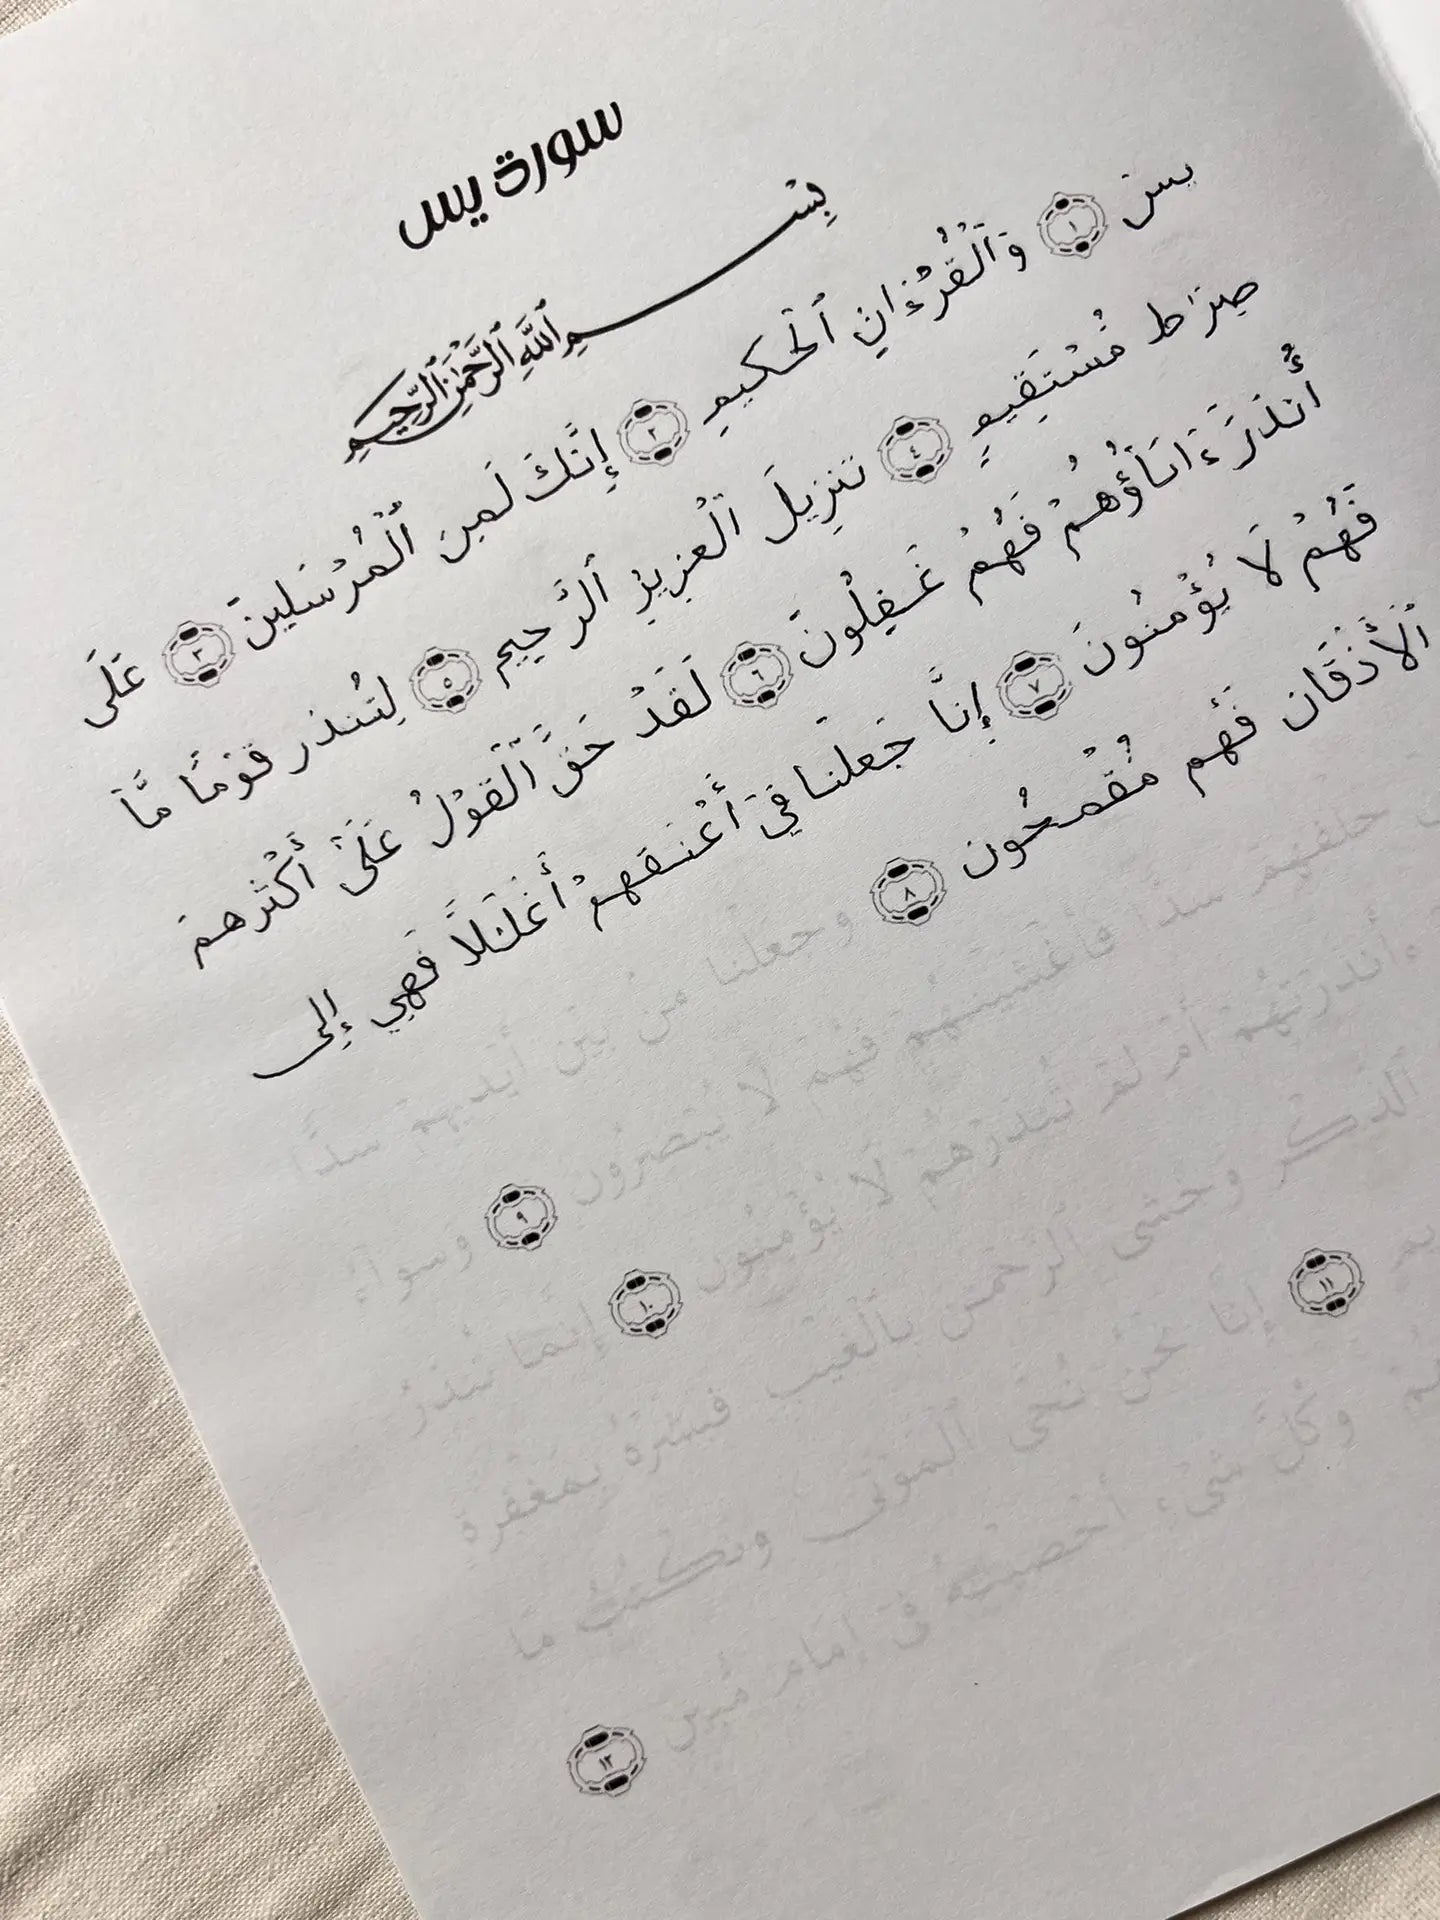 سورة يس
بِسْمِ ٱللَّهِ ٱلرَّحْمَٰنِ ٱلرَّحِيمِ
يسٓ ١ وَٱلْقُرْءَانِ ٱلْحَكِيمِ ٢ إِنَّكَ لَمِنَ ٱلْمُرْسَلِينَ ٣ عَلَى
صِرَاطٍ مُّسْتَقِيمٍ ٤ تَنزِيلَ ٱلْعَزِيزِ ٱلرَّحِيمِ ٥ لِتُنذِرَ قَوْمًا مَّآ
أُنذِرَ ءَابَآؤُهُمْ فَهُمْ غَـٰفِلُونَ ٦ لَقَدْ حَقَّ ٱلْقَوْلُ عَلَىٰٓ أَكْثَرِهِمْ
فَهُمْ لَا يُؤْمِنُونَ ٧ إِنَّا جَعَلْنَا فِيٓ أَعْنَـٰقِهِمْ أَغْلَـٰلًا فَهِيَ إِلَى
ٱلْأَذْقَانِ فَهُم مُّقْمَحُونَ ٨ وجعلنا من بين أيديهم سدًّا
خلفهم سدًّا فأغشينهم فهم لا يُبصرون ٩ وسوآءٌ
ءأنذرتهُمْ أم لم تُنذرهمْ لا يُؤْمنُون ١٠ إنما تُنذرُ
ٱلذكْر وخشى ٱلرحمن بٱلغيب فبشرهُ بمغفرةٍ
١١ إنا نحْنُ نُحى ٱلموتى ونكتُبُ ما
وكُلَّ شىْءٍ أحصينه فى إمام مُبين ١٢